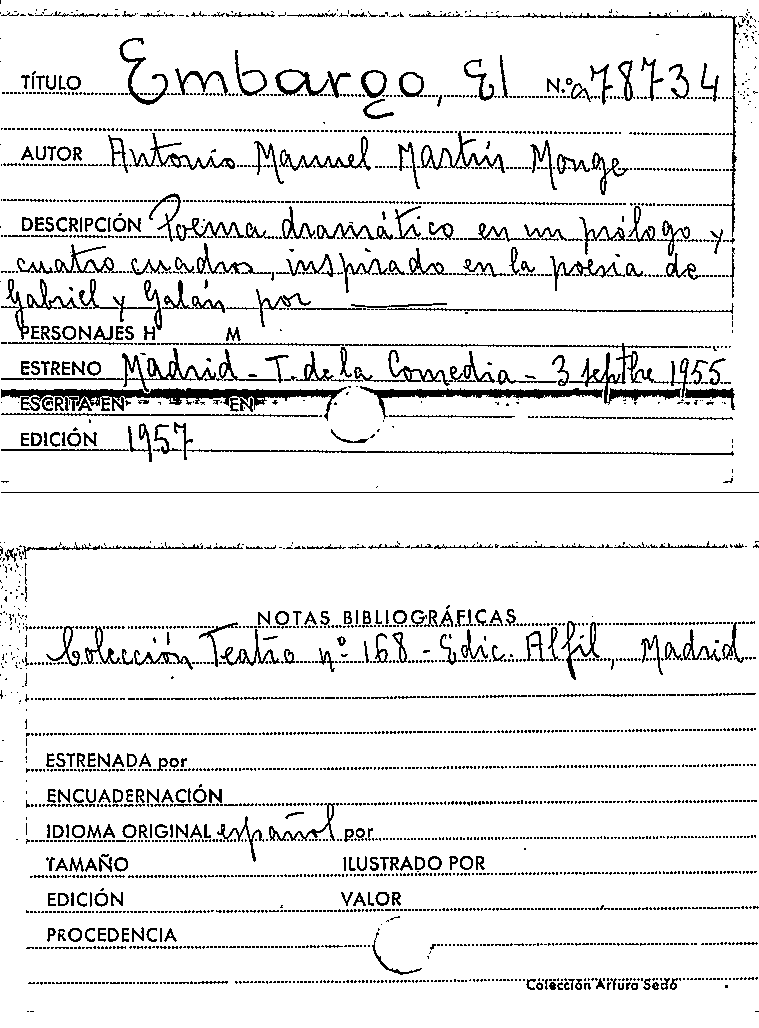 TÍTULO Embargo, El N.º a 78734
AUTOR Antonio Manuel Martín Monge
DESCRIPCIÓN Poema dramático en un prólogo y
cuatro cuadros, inspirado en la poesia de
Gabriel y Galán por ———
PERSONAJES H M
ESTRENO Madrid - T. de la Comedia - 3 sepbre 1955
ESCRITA EN EN
EDICIÓN 1957
NOTAS BIBLIOGRÁFICAS
Colección Teatro nº 168 - Edic. Alfil, Madrid
ESTRENADA por
ENCUADERNACIÓN
IDIOMA ORIGINAL español por
TAMAÑO ILUSTRADO POR
EDICIÓN VALOR
PROCEDENCIA
Colección Arturo Sedó